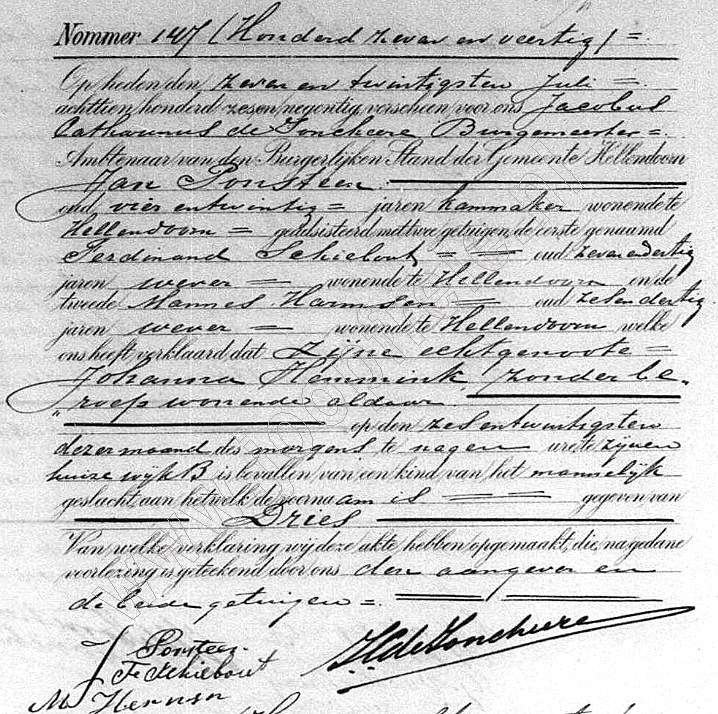 Nommer 147 (Honderd zeven en veertig) =.
Op heden den zeven en twintigsten Juli =
achttien honderd zes en negentig, verscheen voor ons Jacobus
Catharinus de Joncheere Burgemeester =.
Ambtenaar van den Burgerlijken Stand der Gemeente Hellendoorn
Jan Ponsteen
oud vier en twintig = jaren kammaker wonende te
Hellendoorn = geadsisteerd met twee getuigen, de eerste genaamd
Ferdinand Schiebout = = oud zevenendertig
jaren wever = wonende te Hellendoorn en de
tweede Mannes Harmsen = oud zesendertig
jaren wever = wonende te Hellendoorn welke
ons heeft verklaard, dat zijne echtgenoote =
Johanna Hemmink, zonder be„
„roep wonende aldaar
op den zesentwintigsten
dezer maand des morgens te negen ure te zijnen
huize wijk B is bevallen van een kind van het mannelijk
geslacht, aan hetwelk de voornaam is = = gegeven van
Dries
Van welke verklaring wij deze akte hebben opgemaakt, die, na gedane
voorlezing is geteekend door ons den aangever en
de beide getuigen =.
J Ponsteen.
F Schiebout
JC de Joncheere
M